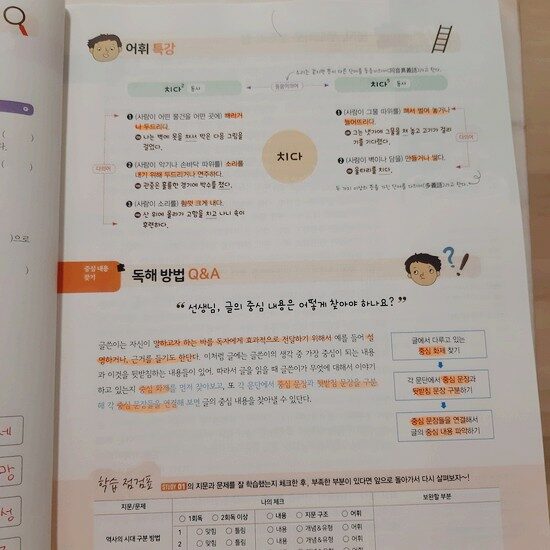 어휘 특강
소리는 같지만 뜻이 다른 단어를 동음이의어(同音異義語)라고 한다.
치다² 동사
동음이의어
치다⁵ 동사
❶ (사람이 어떤 물건을 어떤 곳에) 때리거
나 두드리다.
➡ 나는 벽에 못을 쳐서 박은 다음 그림을
걸었다.
❷ (사람이 악기나 손바닥 따위를) 소리를
내기 위해 두드리거나 연주하다.
➡ 관중은 훌륭한 경기에 박수를 쳤다.
❸ (사람이 소리를) 힘껏 크게 내다.
➡ 산 위에 올라가 고함을 치고 나니 속이
후련하다.
다의어
치다
❶ (사람이 그물 따위를) 펴서 벌여 놓거나
늘어뜨리다.
➡ 그는 냇가에 그물을 쳐 놓고 고기가 걸리
기를 기다렸다.
❷ (사람이 벽이나 담을) 만들거나 쌓다.
➡ 울타리를 치다.
다의어
두 가지 이상의 뜻을 가진 단어를 다의어(多義語)라고 한다.
중심 내용
찾기
독해 방법 Q&A
“ 선생님, 글의 중심 내용은 어떻게 찾아야 하나요? ”
글쓴이는 자신이 말하고자 하는 바를 독자에게 효과적으로 전달하기 위해서 예를 들어 설
명하거나, 근거를 들기도 한단다. 이처럼 글에는 글쓴이의 생각 중 가장 중심이 되는 내용
과 이것을 뒷받침하는 내용들이 있어. 따라서 글을 읽을 때 글쓴이가 무엇에 대해서 이야기
하고 있는지 중심 화제를 먼저 찾아보고, 또 각 문단에서 중심 문장과 뒷받침 문장을 구분
해 각 중심 문장들을 연결해 보면 글의 중심 내용을 찾아낼 수 있단다.
글에서 다루고 있는
중심 화제 찾기
각 문단에서 중심 문장과
뒷받침 문장 구분하기
중심 문장들을 연결해서
글의 중심 내용 파악하기
학습 점검표
STUDY 01의 지문과 문제를 잘 학습했는지 체크한 후, 부족한 부분이 있다면 앞으로 돌아가서 다시 살펴보자~!
지문/문제
나의 체크
보완할 부분
○ 1회독 ○ 2회독 이상 ○ 내용 ○ 지문 구조 ○ 어휘
역사의 시대 구분 방법
1 ○ 맞힘 ○ 틀림 ○ 내용 ○ 개념&유형 ○ 어휘
2 ○ 맞힘 ○ 틀림 ○ 내용 ○ 개념&유형 ○ 어휘
)으로
네
망
성